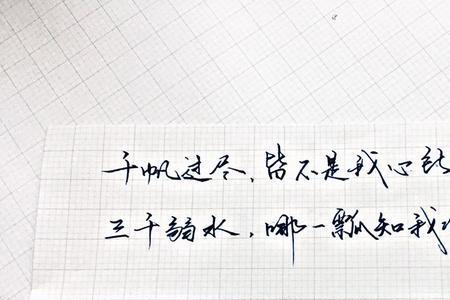 千帆过尽，皆不是我心
三千弱水，哪一瓢知我